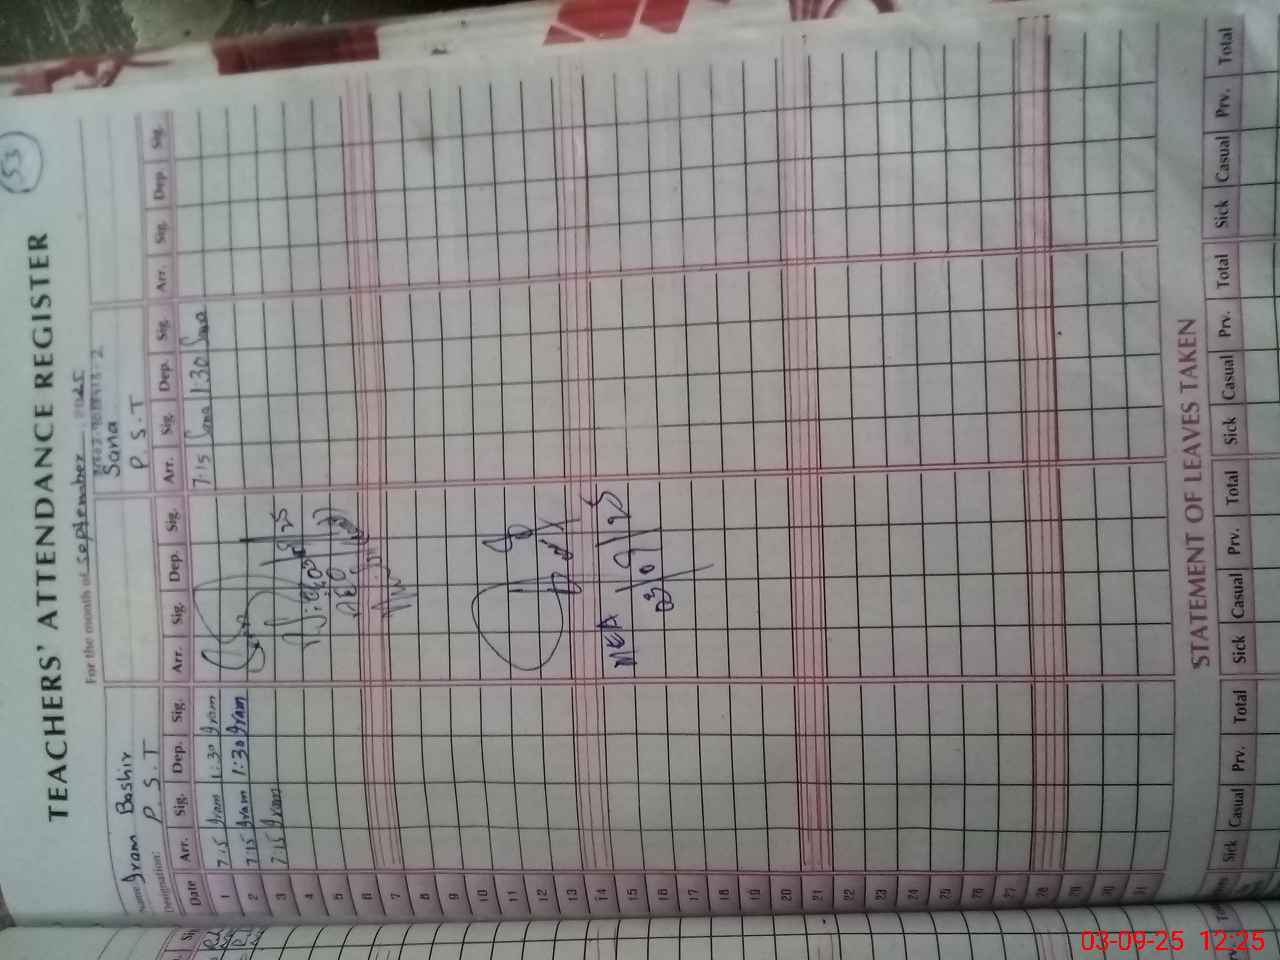 53
TEACHERS' ATTENDANCE REGISTER
For the month of September 2025
Name Iram Bashir Sana
Designation: P.S.T P.S.T
Date Arr. Sig. Dep. Sig. Arr. Sig. Dep. Sig. Arr. Sig. Dep. Sig. Arr. Sig. Dep. Sig.
1 7:15 Iram 1:30 Iram 7:15 Sana 1:30 Sana
2 7:15 Iram 1:30 Iram
3 7:15 Iram
4
5
6
7
8
9
10
11
12
13
14 MEA
15 03/09/25
16
17
18
19
20
21
22
23
24
25
26
27
28
29
30
31
STATEMENT OF LEAVES TAKEN
Sick Casual Prv. Total Sick Casual Prv. Total Sick Casual Prv. Total Sick Casual Prv. Total
03-09-25 12:25